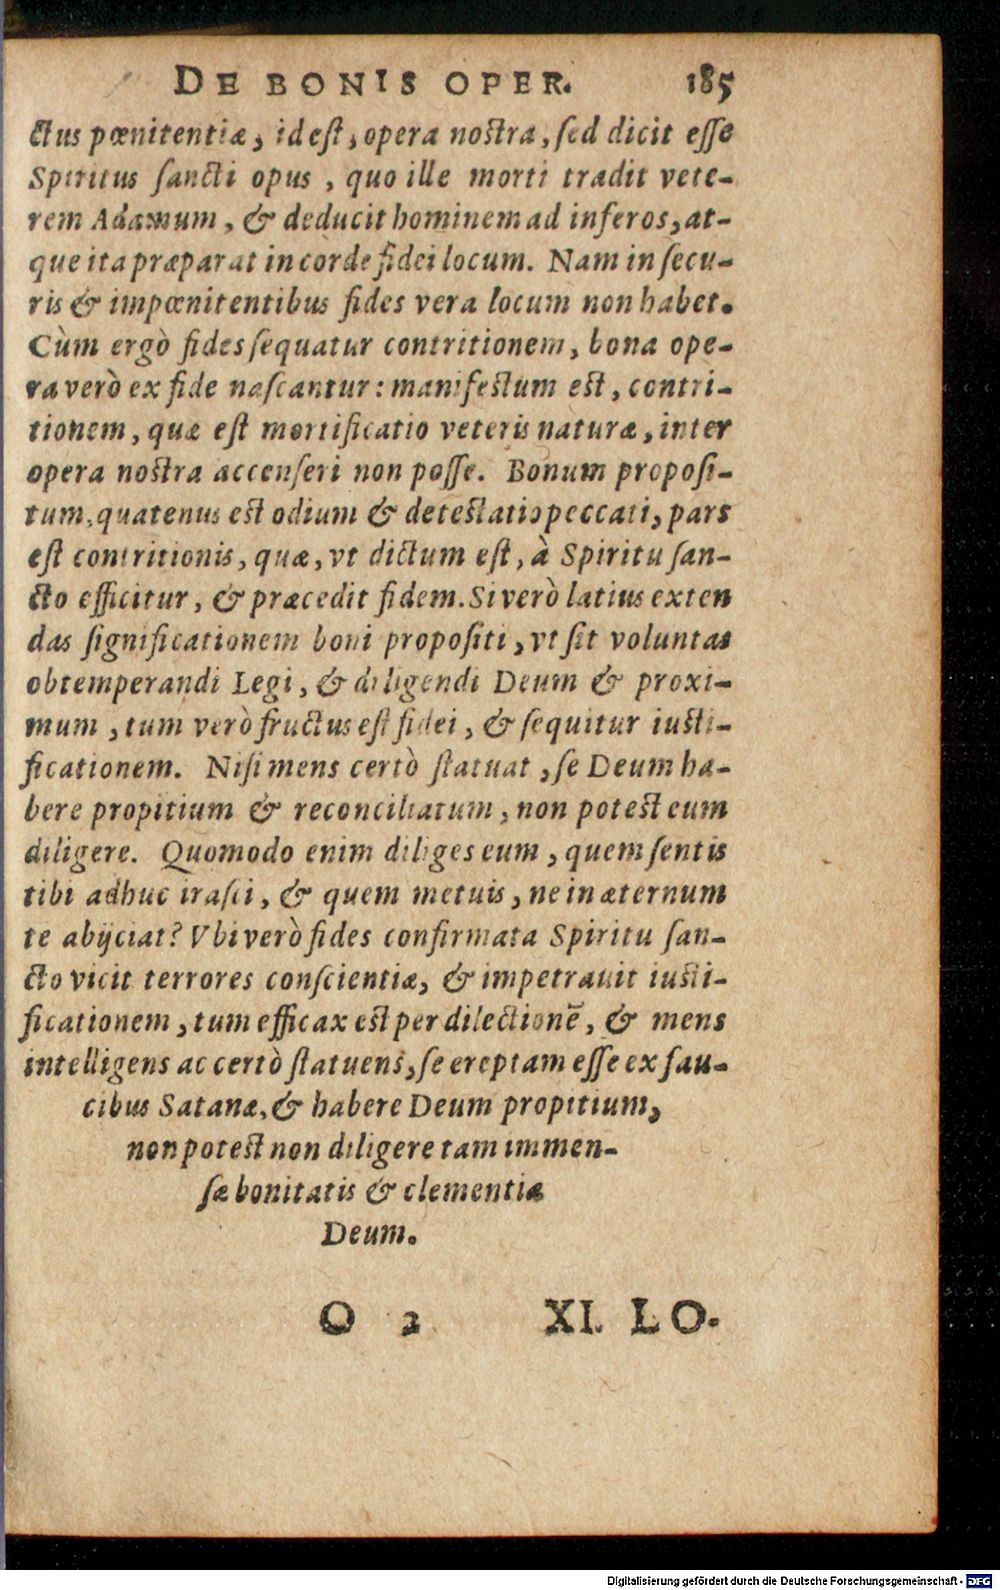 DE BONIS OPER. 185
ctus pœnitentiæ, id est, opera nostra, sed dicit esse
Spiritus sancti opus, quo ille morti tradit vete-
rem Adamum, & deducit hominem ad inferos, at-
que ita præparat in corde fidei locum. Nam in secu-
ris & impœnitentibus fides vera locum non habet.
Cùm ergò fides sequatur contritionem, bona ope-
ra verò ex fide nascantur: manifestum est, contri-
tionem, quæ est mortificatio veteris naturæ, inter
opera nostra accenseri non posse. Bonum proposi-
tum, quatenus est odium & detestatio peccati, pars
est contritionis, quæ, vt dictum est, à Spiritu san-
cto efficitur, & præcedit fidem. Si verò latius exten
das significationem boni propositi, vt sit voluntas
obtemperandi Legi, & diligendi Deum & proxi-
mum, tum verò fructus est fidei, & sequitur iusti-
ficationem. Nisi mens certò statuat, se Deum ha-
bere propitium & reconciliatum, non potest eum
diligere. Quomodo enim diliges eum, quem sentis
tibi adhuc irasci, & quem metuis, ne in æternum
te abijciat? Vbi verò fides confirmata Spiritu san-
cto vicit terrores conscientiæ, & impetrauit iusti-
ficationem, tum efficax est per dilectionē, & mens
intelligens ac certò statuens, se ereptam esse ex fau-
cibus Satanæ, & habere Deum propitium,
non potest non diligere tam immen-
sæ bonitatis & clementiæ
Deum.
O 2 XI. LO.
Digitalisierung gefördert durch die Deutsche Forschungsgemeinschaft - DFG